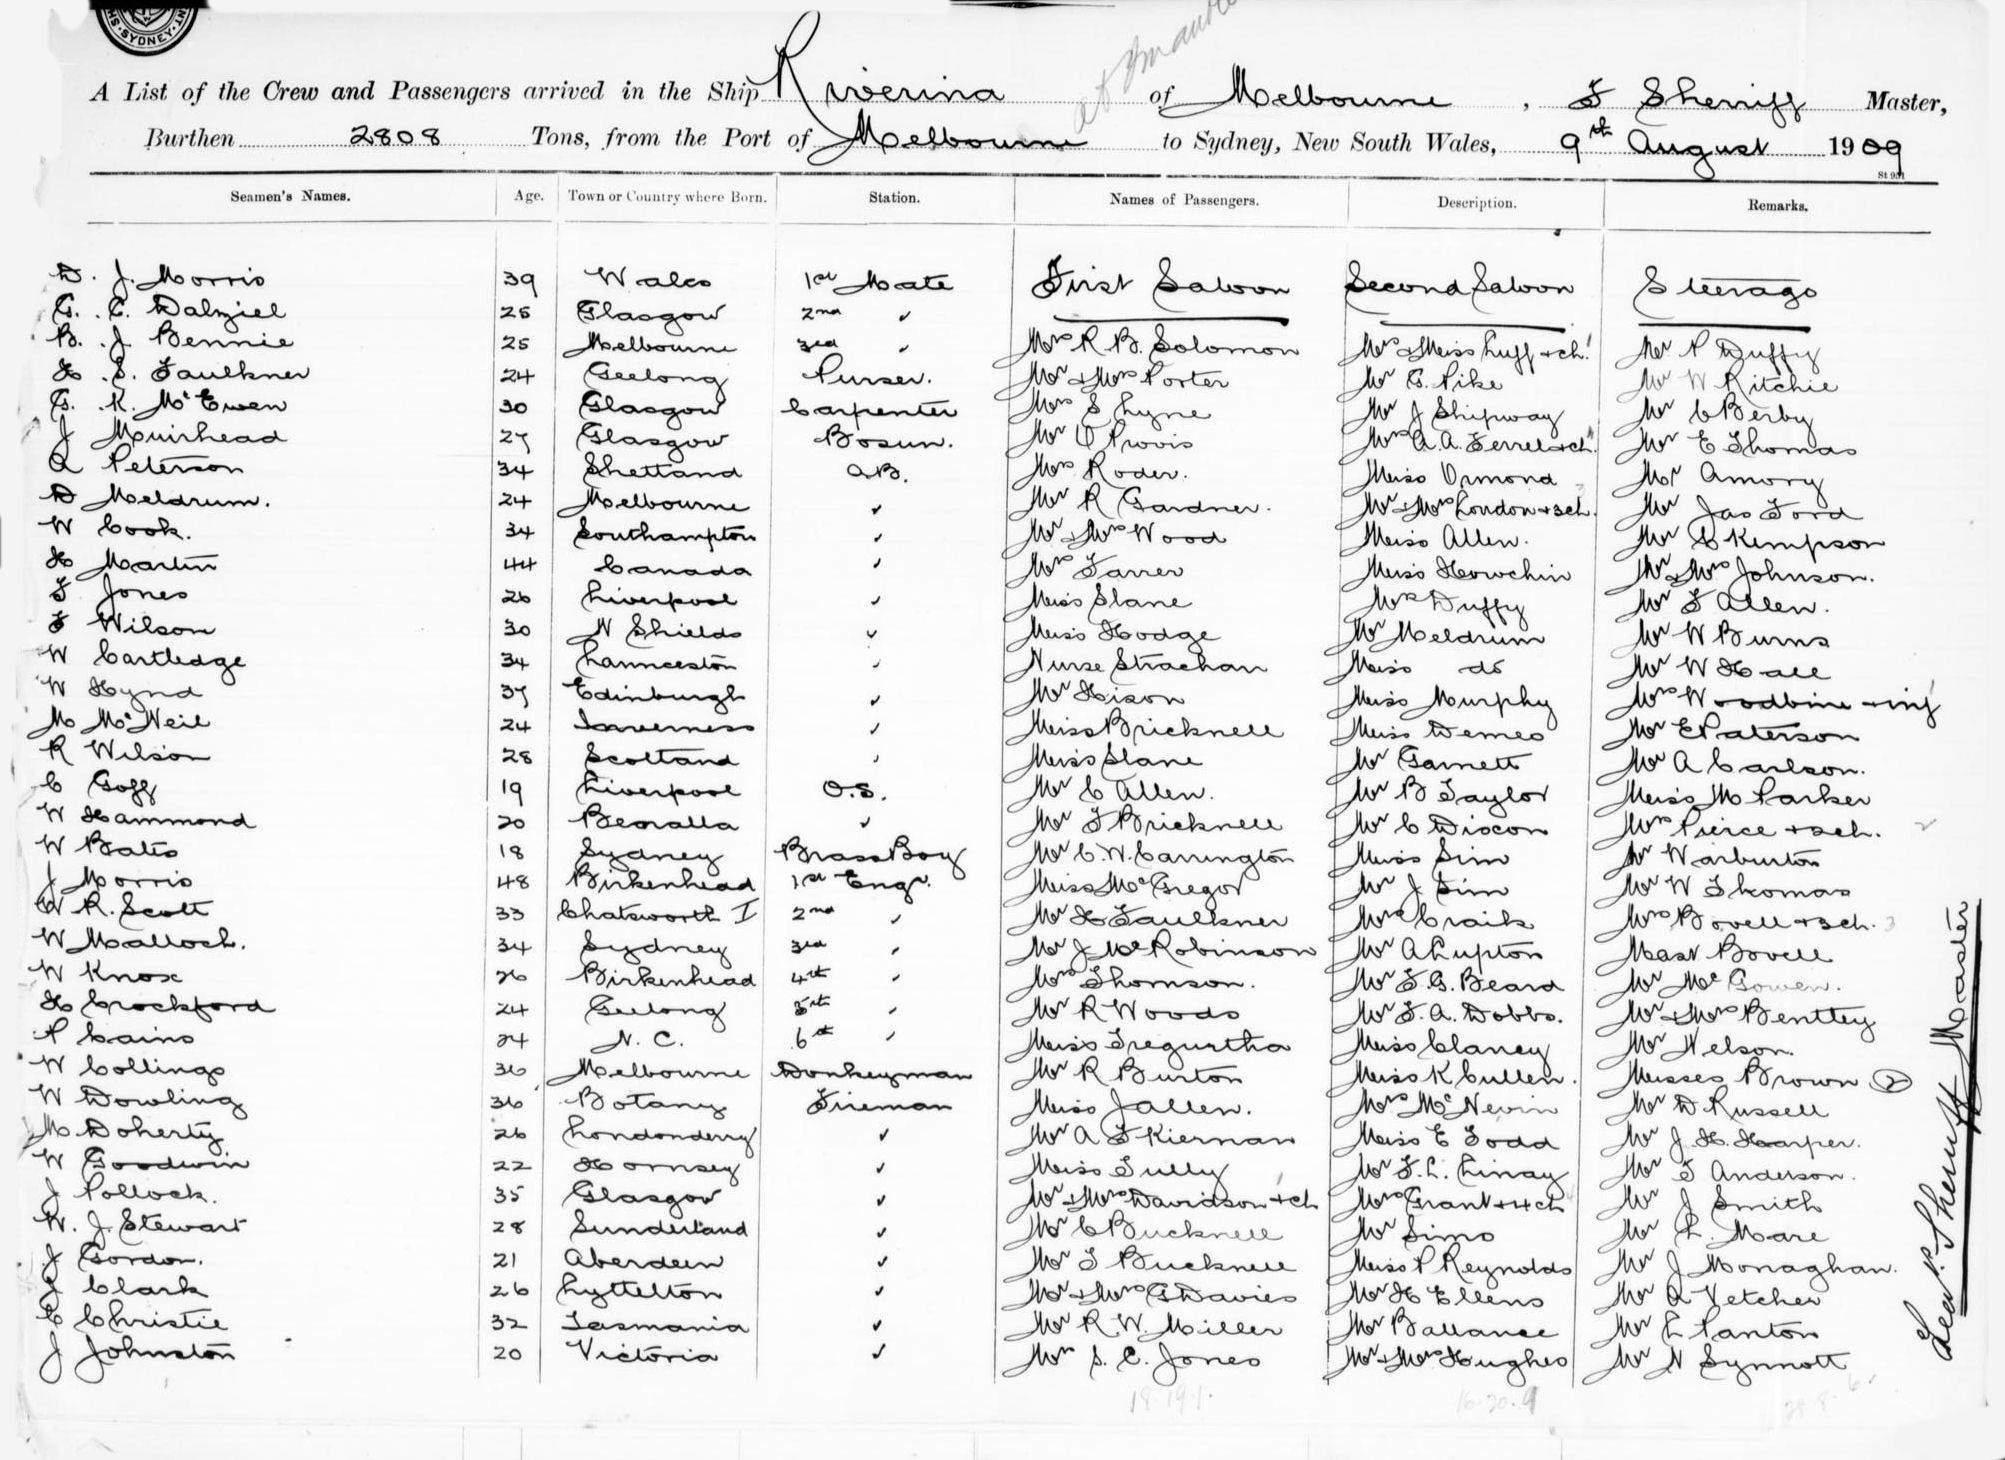 SYDNEY
A List of the Crew and Passengers arrived in the Ship Riverina of Melbourne, F Sherriff Master,
Burthen 2808 Tons, from the Port of Melbourne to Sydney, New South Wales, 9th August 1909
St 951
Seamen's Names. Age. Town or Country where Born. Station. Names of Passengers. Description. Remarks.
D. J. Morris 39 Wales 1st Mate First Saloon Second Saloon Steerage
G. C. Dalziel 25 Glasgow 2nd ✓
B. J Bennie 25 Melbourne 3rd ✓ Mrs R B. Solomon Mrs & Miss Luff & ch. Mr P Duffy
H. S. Faulkner 24 Geelong Purser. Mr & Mrs Porter Mr G. Pike Mr W Ritchie
G. K. McEwen 30 Glasgow Carpenter Mrs S Lyne Mr J Shipway Mr C Berby
J Muirhead 27 Glasgow Bosun. Mr V Provis Mrs A. A. Ferrel & ch Mr E Thomas
A Peterson 34 Shetland A.B. Mrs Roder. Miss Ormond Mr Amory
D Meldrum. 24 Melbourne ✓ Mr R Gardner. Mr & Mrs London & 3 ch. Mr Jas Ford
W Cook. 34 Southampton ✓ Mr & Mrs Wood Miss Allen. Mr C Kempson
H Martin 44 Canada ✓ Mrs Farrer Miss Howchin Mr & Mrs Johnson.
F Jones 26 Liverpool ✓ Miss Slane Mrs Duffy Mr F Allen.
F Wilson 30 N Shields ✓ Miss Hodge Mr Meldrum Mr W Burns
W Cartledge 34 Launceston ✓ Nurse Strachan Miss do Mr W Hall
W Hynd 37 Edinburgh ✓ Mr Hixon Miss Murphy Mrs Woodbine & inf
M McNeil 24 Inverness ✓ Miss Bricknell Miss Demeo Mr E Paterson
R Wilson 28 Scotland ✓ Miss Slane Mr Garnett Mr A Carlson.
C Goff 19 Liverpool O.S. Mr C Allen. Mr B Taylor Miss M Parker
W Hammond 20 Benalla ✓ Mr F Bricknell Mr C Dixon Mrs Pierce & 3 ch. 2
W Bates 18 Sydney Brass Boy Mr C. W. Carrington Miss Sim Mr Warburton
J Morris 48 Birkenhead 1st Engr. Miss McGregor Mr J Sim Mr W Thomas
W R. Scott 33 Chatsworth I 2nd ✓ Mr H Faulkner Mrs Craik Mrs Bovell & 3 ch. 3
W Malloch. 34 Sydney 3rd ✓ Mr J McRobinson Mr A Lupton Mast Bovell
W Knox 26 Birkenhead 4th ✓ Mrs Thomson. Mr F. G. Beard Mr McGowen.
H Crockford 24 Geelong 5th ✓ Mr R Woods Mr F. A. Dobbs. Mr & Mrs Bentley
P Cains 24 N. C. 6th ✓ Miss Tregurtha Miss Clancy Mr Nelson.
W Collings 36 Melbourne Donkeyman Mr R Burton Miss K Cullen. Misses Brown (2)
W Dowling 36 Botany Fireman Miss J Allen. Mrs McNevin Mr D Russell
M Doherty 26 Londonderry ✓ Mr A F Kiernan Miss E Todd Mr J. H. Harper.
W Goodwin 22 Hornsey ✓ Miss Tully Mr F. L. Linay Mr T Anderson.
J Pollock. 35 Glasgow ✓ Mr & Mrs Davidson & ch Mrs Grant & 4 ch Mr J Smith
W. J. Stewart 28 Sunderland ✓ Mr C Bucknell Mr Sims Mr L. Mare
J Gordon. 21 Aberdeen ✓ Mr F Bucknell Miss P Reynolds Mr J Monaghan.
J Clark 26 Lyttelton ✓ Mr & Mrs G Davies Mr H Ellens Mr A Vetcher
E Christie 32 Tasmania ✓ Mr R. W. Miller Mr Ballance Mr L Panton
J Johnston 20 Victoria ✓ Mrs S. E. Jones Mr & Mrs Hughes Mr N Synnott
18.19.1. 16.20.9
Sherriff Master